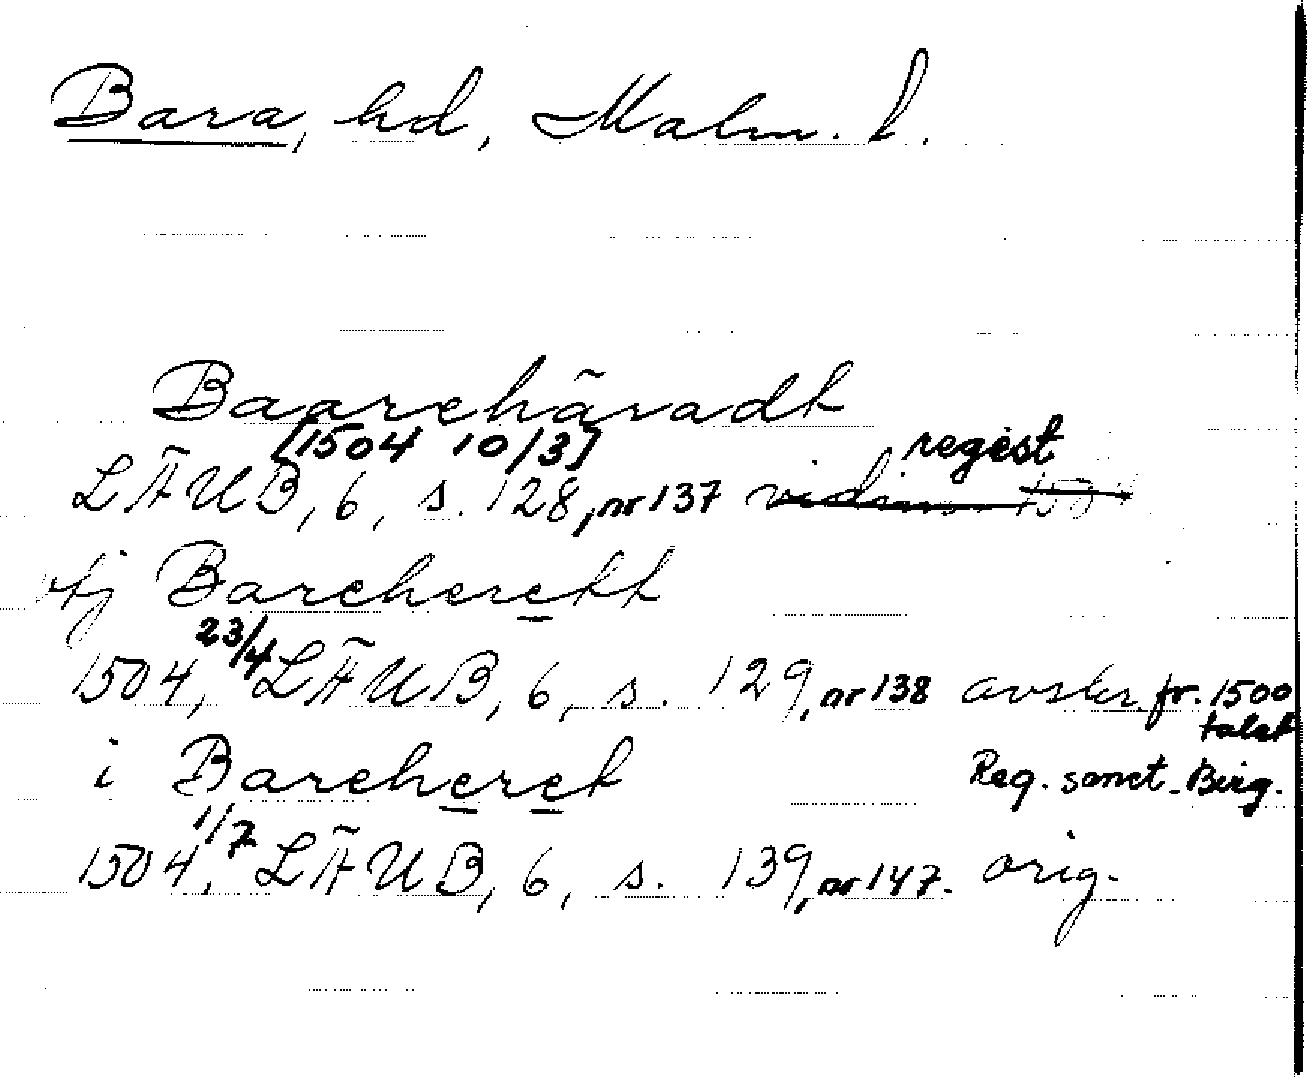 Bara, hd, Malm. l.
Baarehäradt
[1504 10/3] regest
LÄUB, 6, s. 128, nr 137 vidim. 1504
tj Bareherett
1504, 23/4 LÄUB, 6, s. 129, nr 138 avskr. fr. 1500
talet
i Bareheret Reg. sanct. Birg.
1504, 1/7 LÄUB, 6, s. 139, nr 147. orig.